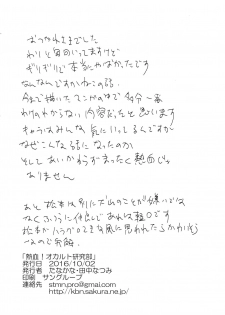 おつかれさまでした
わりと毎回いってますけど
ギリギリで本当にやばかったです
なんなんですかねこの話
今まで描いたてこかの中で 多分一番
わけのわからない内容だったと思います
キャラはみんな気にいってるんですが
なぜこんな話になったのか
そしてあいかわらずまったく熱血じゃ
ありません
あと 松本は別に のことが嫌いでは
なくふつうに仲良し
松本が な風に思われたらかわいそう
なので
「熱血！オカルト研究部」
発行日 2016/10/02
発行者 たなかな・田中なつみ
印刷 サングループ
連絡先 ométro.pro@gmail.com
http://kbn.sakura.ne.jp/